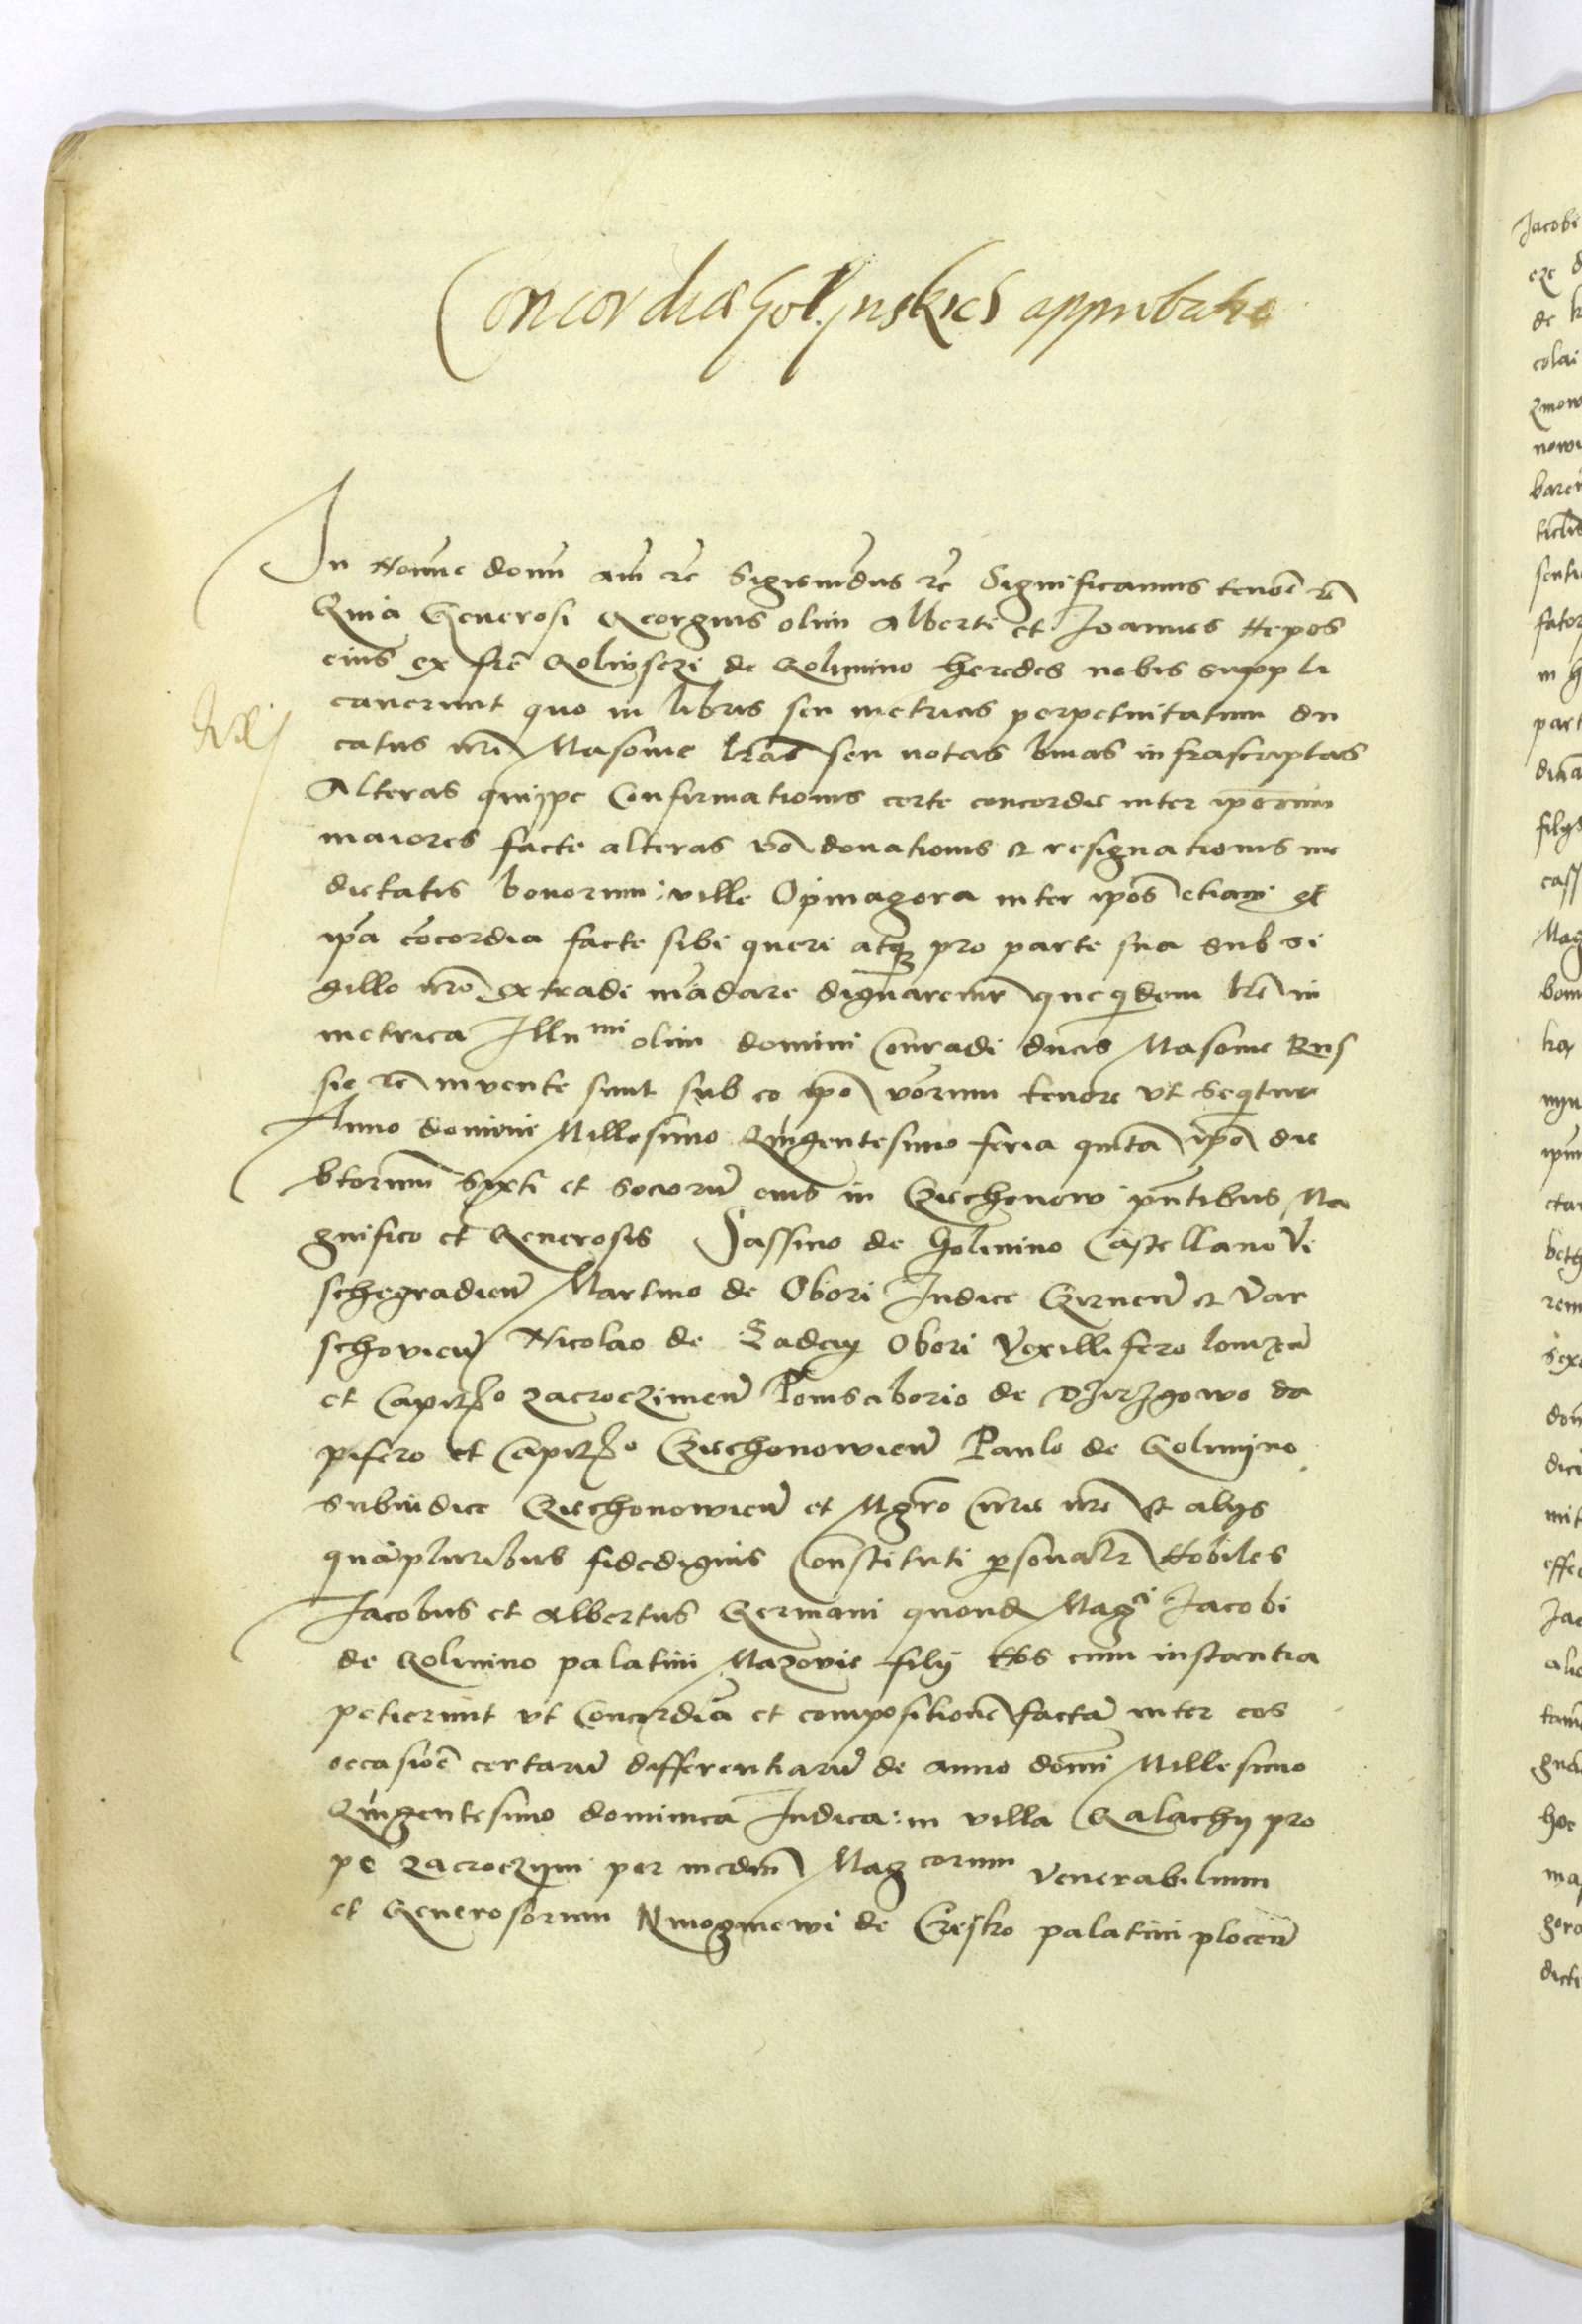 Concordia Golynskich approbatio
In Nomine domi am rc Sigismudus rc Significamus tenoe rc
Quia Generosi Georgius olim Alberti et Joannes Nepos
eius ex fre Golinsczi de Golimino heredes nobis suppli
caverunt quo in libris seu metricis perpetuitatum du
catus nri Masovie lras seu notas binas infrascriptas
Alteras quippe Confirmationis certe concordie inter iporum
maiores facte alteras vo donationis et resignationis me
dietatis bonorum ville Opinagora inter ipos etiam et
ipa cocordia facte sibi queri atq pro parte sua sub si
gillo nro extradi madare dignaremur que qdem lre in
metrica Illu mi olim domini Conradi ducis Masovie Rus
sie rc invente sunt sub eo ipo vorum tenore ut seqtur
Anno domini Millesimo Quingentesimo feria quinta ipo die
btorum Sixti et sociorum eius in Cziechonow pntibus Ma
gnifico et Generosis Sassino de Golimino Castellano Vi
schegradien Martino de Obori Iudice Czirnen et Var
schovien Nicolao de Zadey Obori Vexillifero lomzen
et Capito zacroczimen Pomsciborio de Dzirzgowo da
pifero et Capito Cziechonowien Paulo de Golimyno
Subiudice Cziechonowien et Mgro Curie nre et alijs
quapluribus fidedignis Constituti psonalr Nobiles
Jacobus et Albertus Germani quond Mag i Jacobi
de Golimino palatini Mazovie filij Nos cum instantia
petierunt ut Concordia et compositione facta inter eos
occasioe certaru differentiaru de anno domi Millesimo
Quingentesimo dominica Iudica in villa Galachy pro
pe zacroczym per medm Mag corum Venerabilium
et Generosorum Nmogniewi de Czesko palatini plocen